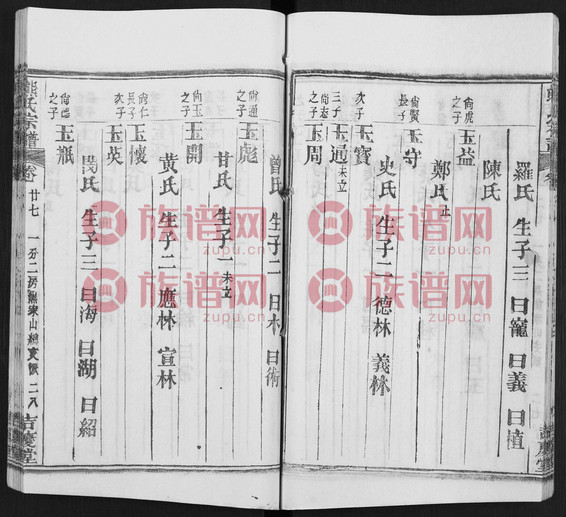 羅氏 生子三 曰寵 曰義 曰植
陳氏
尙虎之子 玉益
鄭氏 止
尙賢長子 玉守
史氏 生子二 德林 義林
次子 玉寶
三子 玉過 未立
尙志之子 玉周
曾氏 生子二 曰木 曰術
尙通之子 玉彪
甘氏 生子一 未立
尙玉之子 玉開
黄氏 生子二 應林 宣林
尙仁長子 玉懷
次子 玉英
之子 玉瓶
閔氏 生子三 曰海 曰湖 曰紹
熊氏宗譜 卷 廿七 一分二房熊家山 二八 吉慶堂
族谱网
zupu.cn
族谱网
zupu.cn
族谱网
zupu.cn
族谱网
zupu.cn